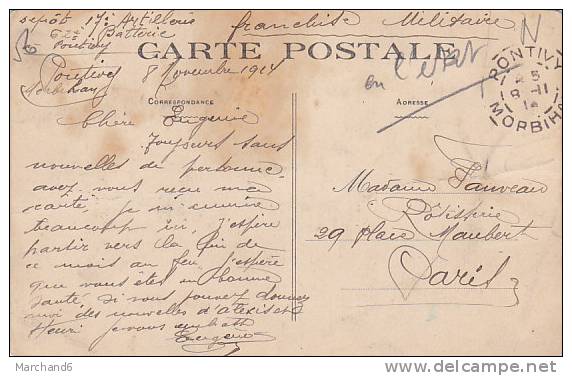 Dépôt 17e Artillerie
62e Batterie
Pontivy
franchise Militaire
N
CARTE POSTALE
Pontivy
Morbihan
8 Novembre 1914
PONTIVY
8-11
14
MORBIHAN
CORRESPONDANCE
ADRESSE
Chère Eugenie
Toujours sans
nouvelles de personne.
avez vous reçu ma
carte, je m'ennuie
beaucoup ici, j'espère
partir vers la fin de
ce mois au feu j'espère
que vous êtes en bonne
santé, si vous pouvez donnez
moi des nouvelles d'Alexis et
Henri je vous embrasse
Eugene
Madame Fauveau
Rôtisserie
29 Place Maubert
Paris
Marchand6
http://www.delcampe.net